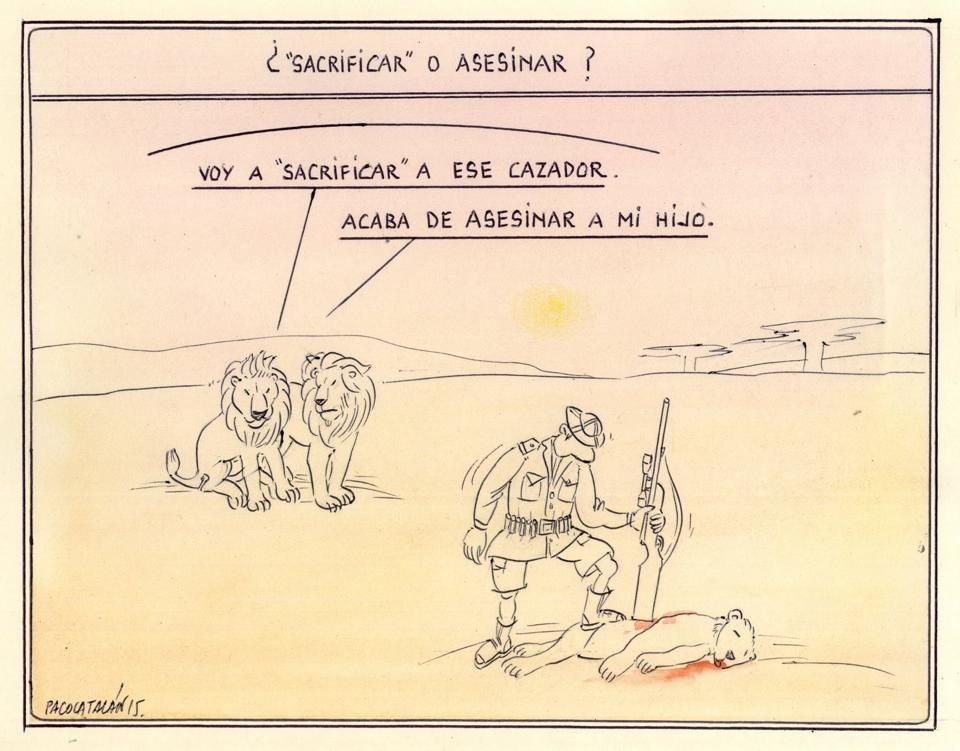 ¿"SACRIFICAR" O ASESINAR?
VOY A "SACRIFICAR" A ESE CAZADOR.
ACABA DE ASESINAR A MI HIJO.
PACO CATALÁN 15.